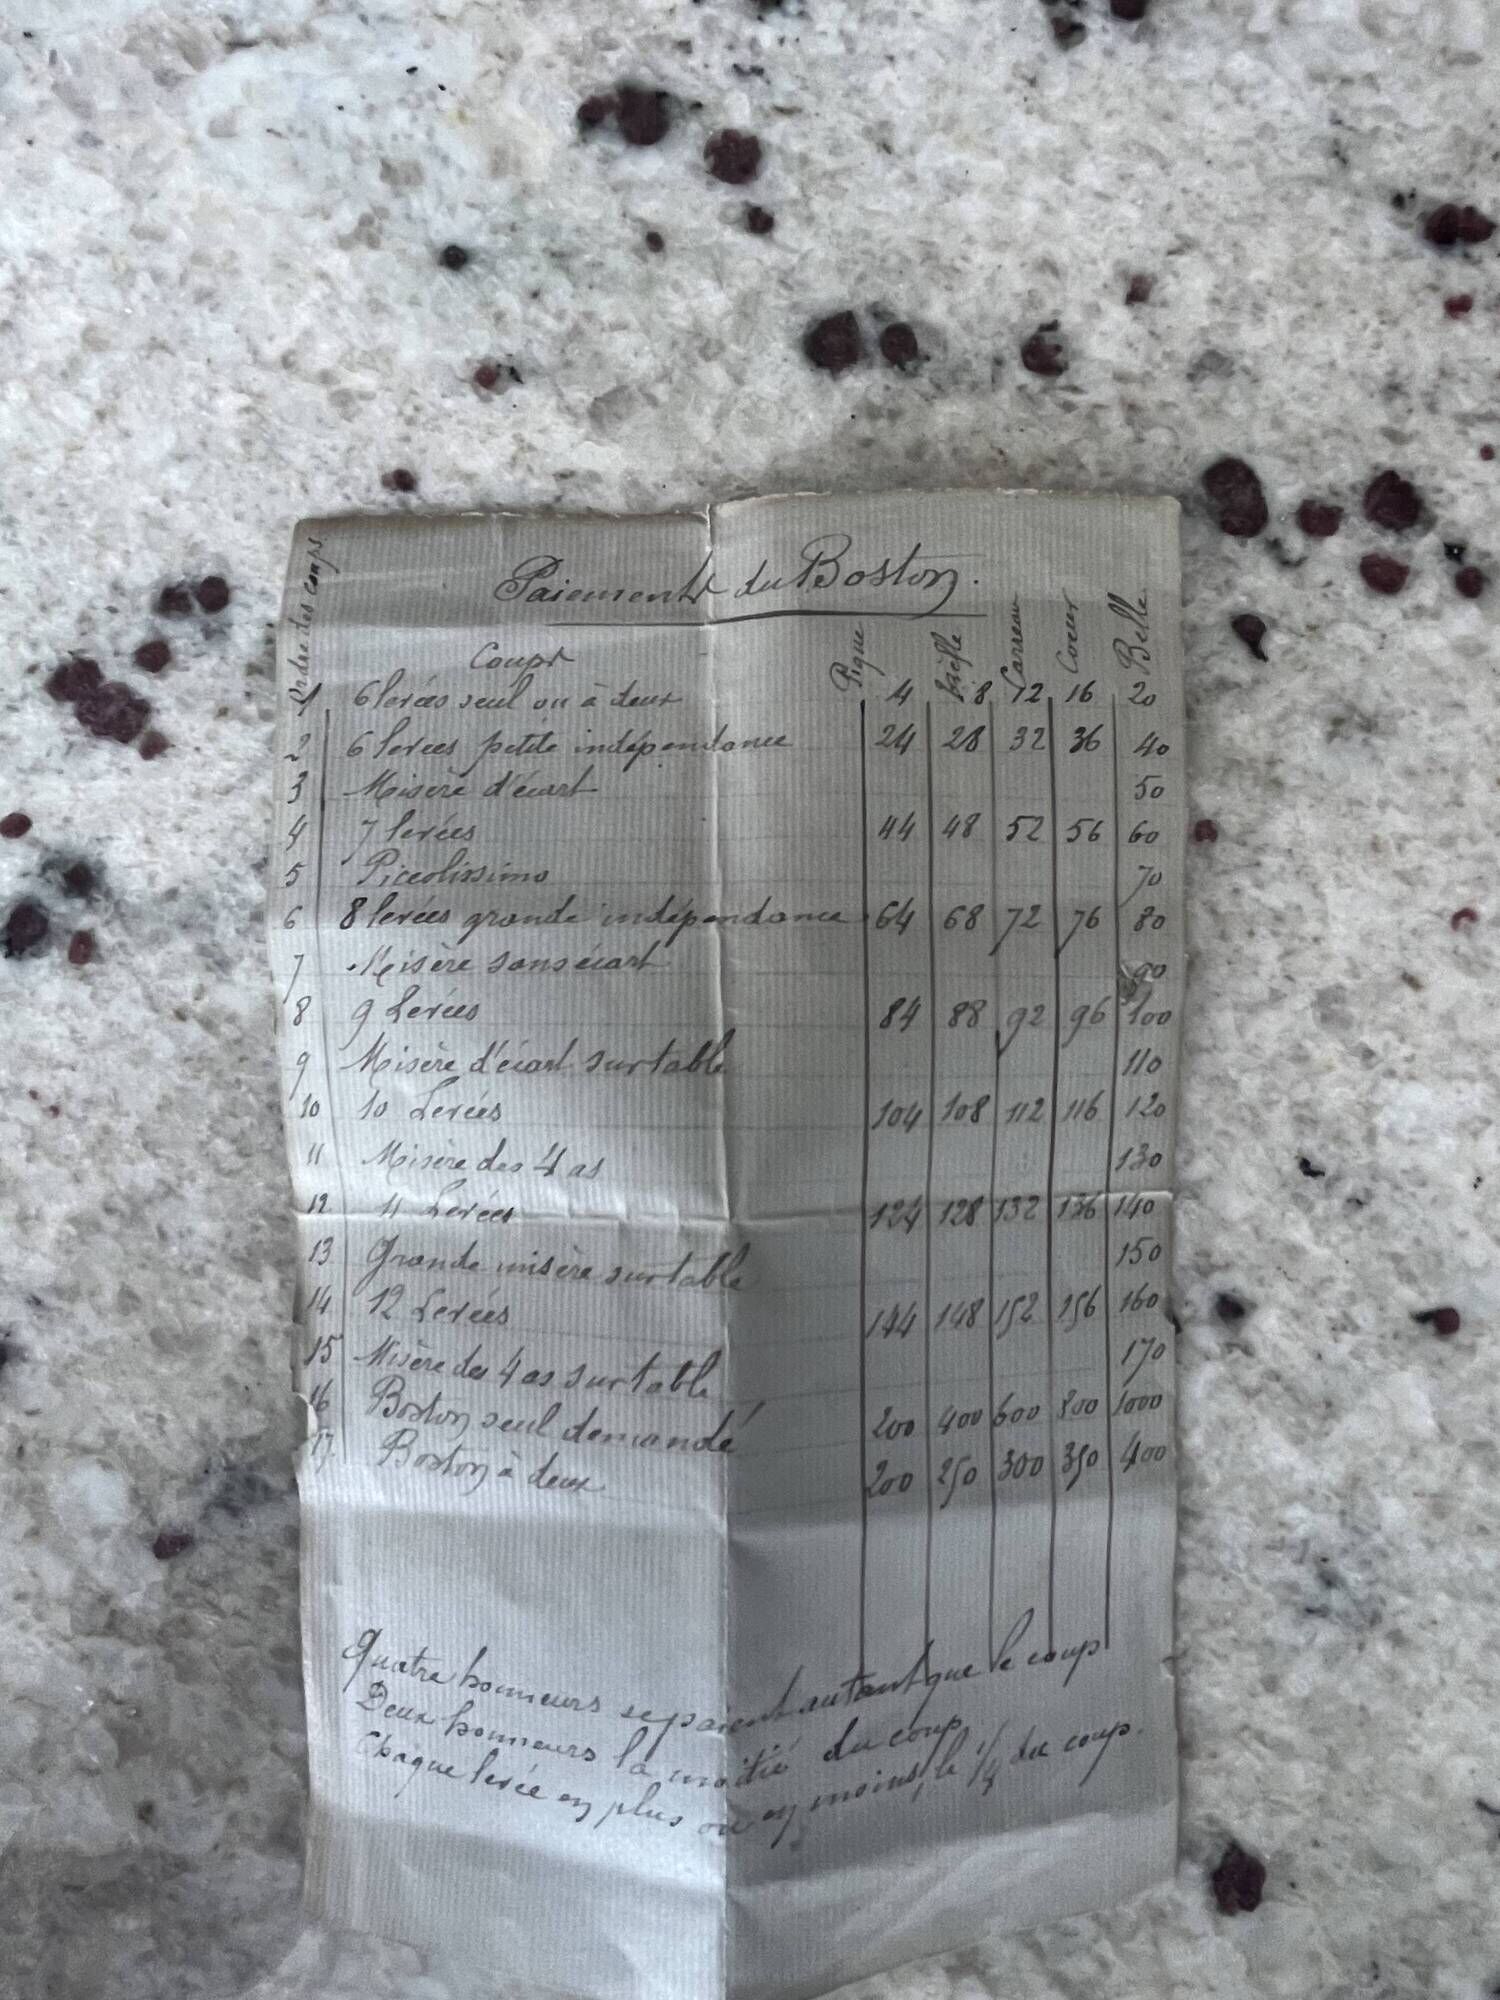 Paiements du Boston.
Ordre des coups Coups Pique Trèfle Carreau Coeur Belle
1 6 levées seul ou à deux 4 8 12 16 20
2 6 levées petite indépendance 24 28 32 36 40
3 Misère d'écart 50
4 7 levées 44 48 52 56 60
5 Piccolissimo 70
6 8 levées grande indépendance 64 68 72 76 80
7 Misère sans écart 90
8 9 Levées 84 88 92 96 100
9 Misère d'écart sur table 110
10 10 Levées 104 108 112 116 120
11 Misère des 4 as 130
12 11 Levées 124 128 132 136 140
13 Grande misère sur table 150
14 12 Levées 144 148 152 156 160
15 Misère des 4 as sur table 170
16 Boston seul demandé 200 400 600 800 1000
17 Boston à deux 200 250 300 350 400
Quatre honneurs se paient autant que le coup
Deux honneurs la moitié du coup
Chaque levée en plus ou en moins, le 1/4 du coup.